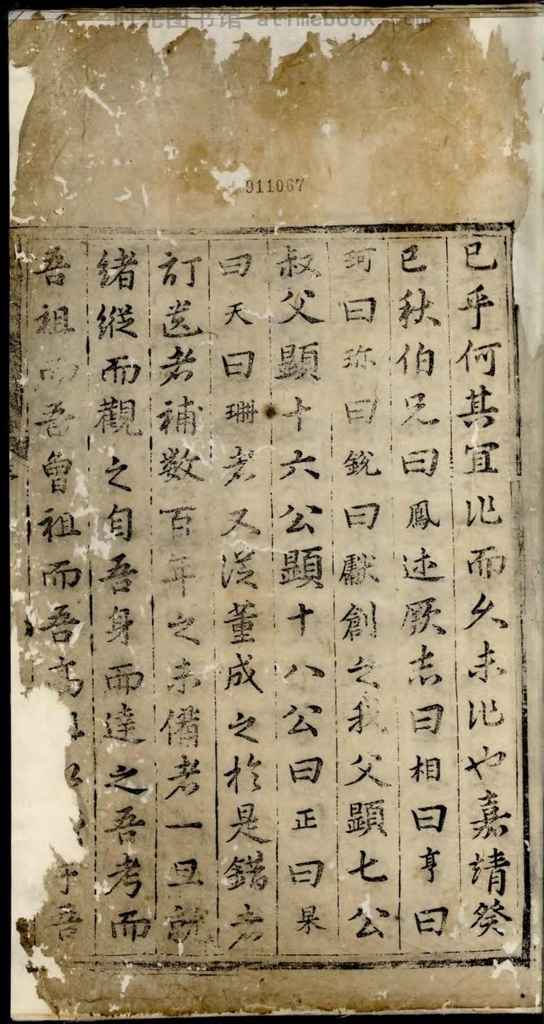 时光图书馆 atimebook.com
911067
已乎何其宜作而久未作也嘉靖癸
巳秋伯兄曰鳳述厥志曰相曰亨曰
珂曰珎曰銳曰獻創之我父顕七公
叔父顕十六公顕十八公曰正曰杲
曰天曰珊者又從董成之於是錯者
訂送者補数百年之未備者一旦就
緒縱而觀之自吾身而達之吾考而
吾祖而吾曾祖而吾高吾